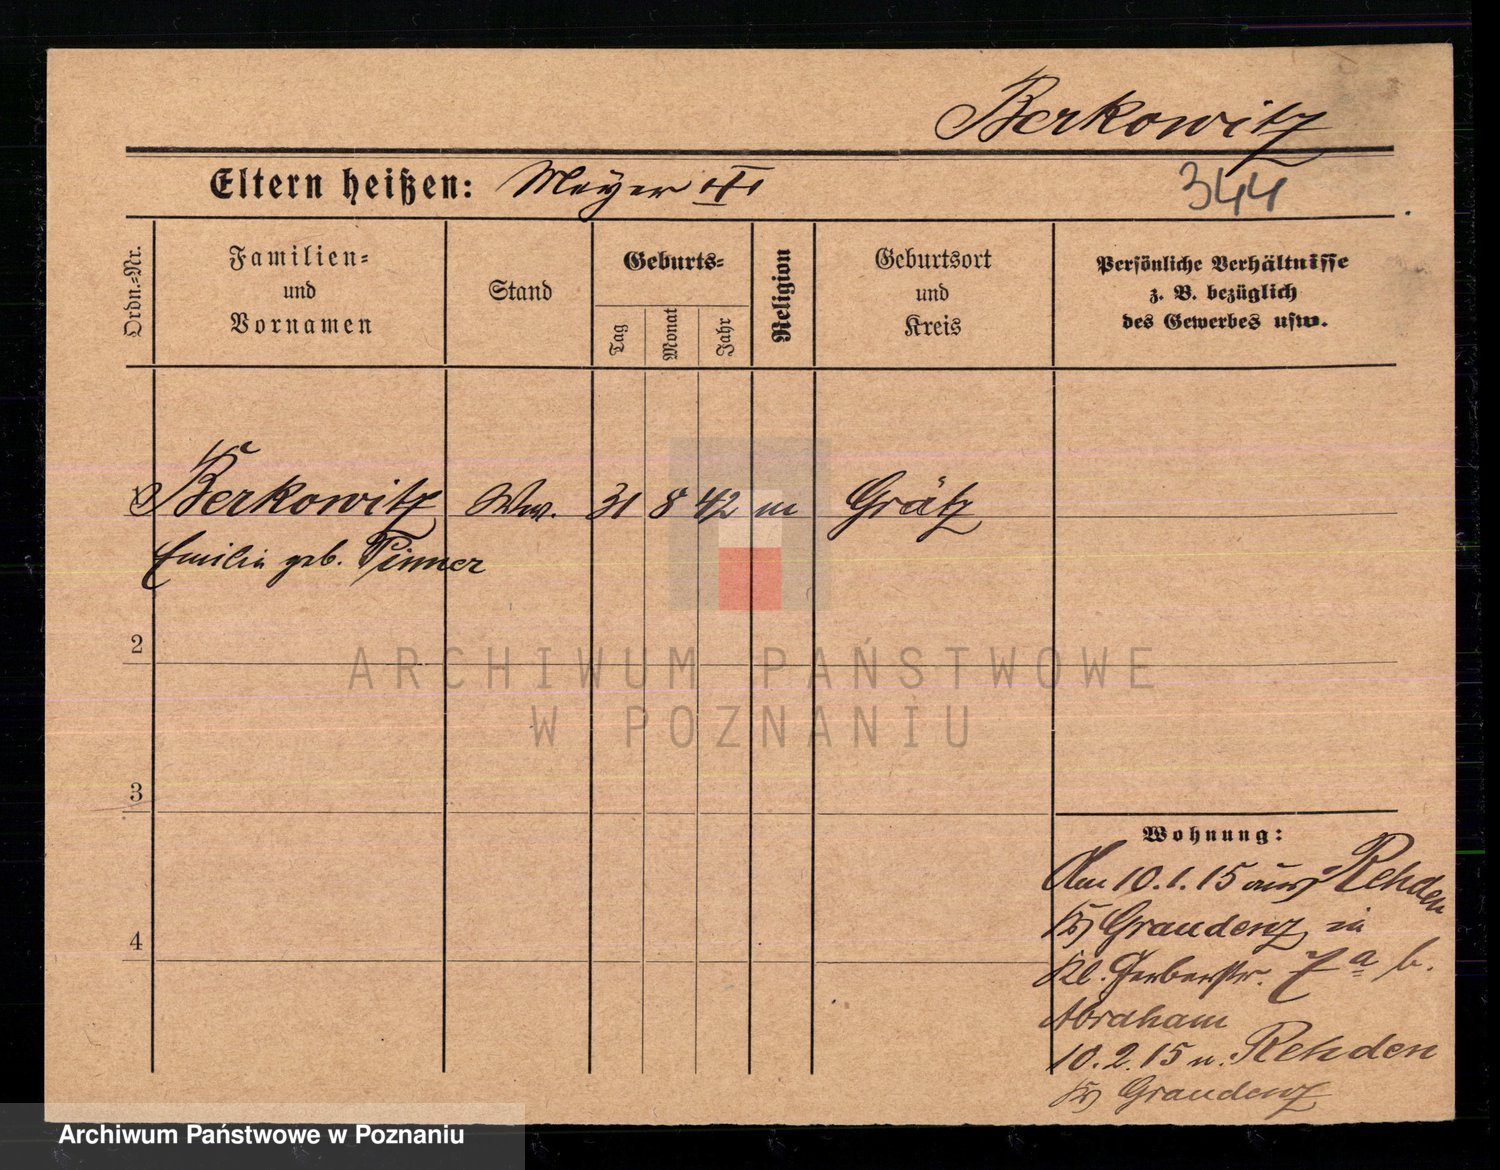 Berkowitz
Eltern heißen: Meyer
344
Ordn.=Nr.
Familien=
und
Vornamen
Stand
Geburts=
Tag
Monat
Jahr
Religion
Geburtsort
und
Kreis
Persönliche Verhältnisse
z. B. bezüglich
des Gewerbes usw.
1 Berkowitz Ww. 31 8 42 m Grätz
Emilie geb. Pinner
2
3
4
Wohnung:
Am 10.1.15 aus Rehden
Kr Graudenz in
Kl. Gerberstr. 7a b.
Abraham
10.2.15 n. Rehden
Kr Graudenz
ARCHIWUM PAŃSTWOWE
W POZNANIU
Archiwum Państwowe w Poznaniu